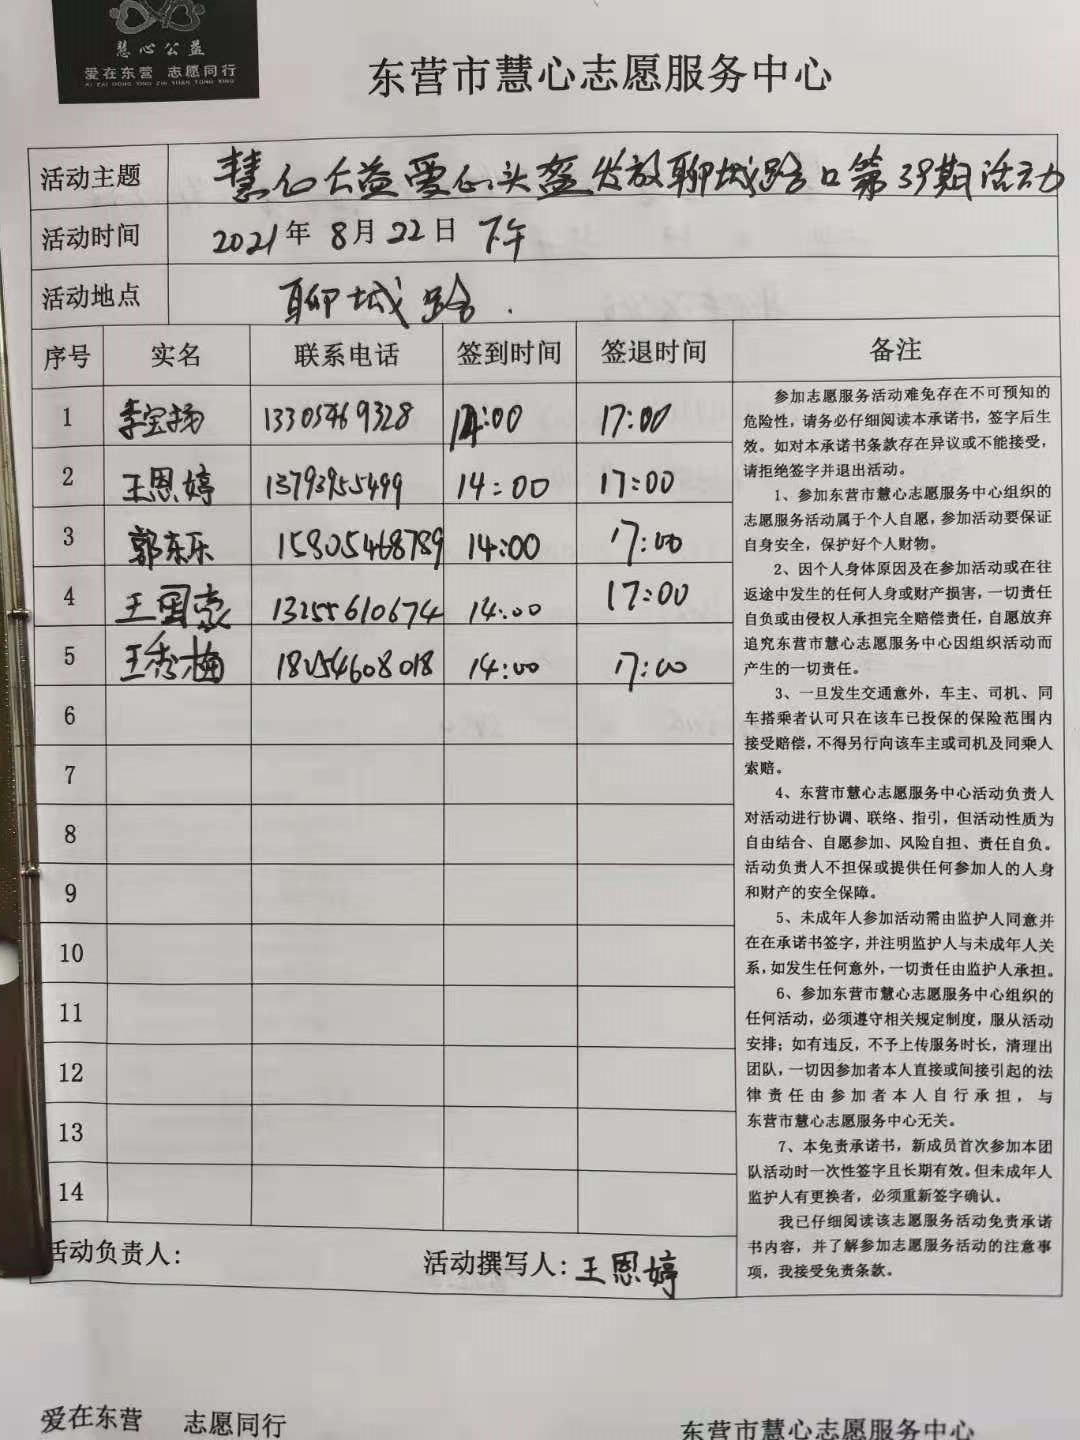 慧心公益
爱在东营 志愿同行
AI ZAI DONG YING ZHI YUAN TONG XING
东营市慧心志愿服务中心
活动主题 慧心公益爱心头盔发放聊城路口第39期活动
活动时间 2021年8月22日 下午
活动地点 聊城路.
序号 实名 联系电话 签到时间 签退时间 备注
1 李宝扬 13305469328 14:00 17:00
2 王恩婷 13793955499 14:00 17:00
3 郭东乐 15805468789 14:00 17:00
4 王国豪 13255610674 14:00 17:00
5 王秀梅 18254608018 14:00 17:00
6
7
8
9
10
11
12
13
14
参加志愿服务活动难免存在不可预知的
危险性，请务必仔细阅读本承诺书，签字后生
效。如对本承诺书条款存在异议或不能接受，
请拒绝签字并退出活动。
1、参加东营市慧心志愿服务中心组织的
志愿服务活动属于个人自愿，参加活动要保证
自身安全，保护好个人财物。
2、因个人身体原因及在参加活动或在往
返途中发生的任何人身或财产损害，一切责任
自负或由侵权人承担完全赔偿责任，自愿放弃
追究东营市慧心志愿服务中心因组织活动而
产生的一切责任。
3、一旦发生交通意外，车主、司机、同
车搭乘者认可只在该车已投保的保险范围内
接受赔偿，不得另行向该车主或司机及同乘人
索赔。
4、东营市慧心志愿服务中心活动负责人
对活动进行协调、联络、指引，但活动性质为
自由结合、自愿参加、风险自担、责任自负。
活动负责人不担保或提供任何参加人的人身
和财产的安全保障。
5、未成年人参加活动需由监护人同意并
在在承诺书签字，并注明监护人与未成年人关
系，如发生任何意外，一切责任由监护人承担。
6、参加东营市慧心志愿服务中心组织的
任何活动，必须遵守相关规定制度，服从活动
安排；如有违反，不予上传服务时长，清理出
团队，一切因参加者本人直接或间接引起的法
律责任由参加者本人自行承担，与
东营市慧心志愿服务中心无关。
7、本免责承诺书，新成员首次参加本团
队活动时一次性签字且长期有效。但未成年人
监护人有更换者，必须重新签字确认。
我已仔细阅读该志愿服务活动免责承诺
书内容，并了解参加志愿服务活动的注意事
项，我接受免责条款。
活动负责人： 活动撰写人：王恩婷
爱在东营 志愿同行 东营市慧心志愿服务中心